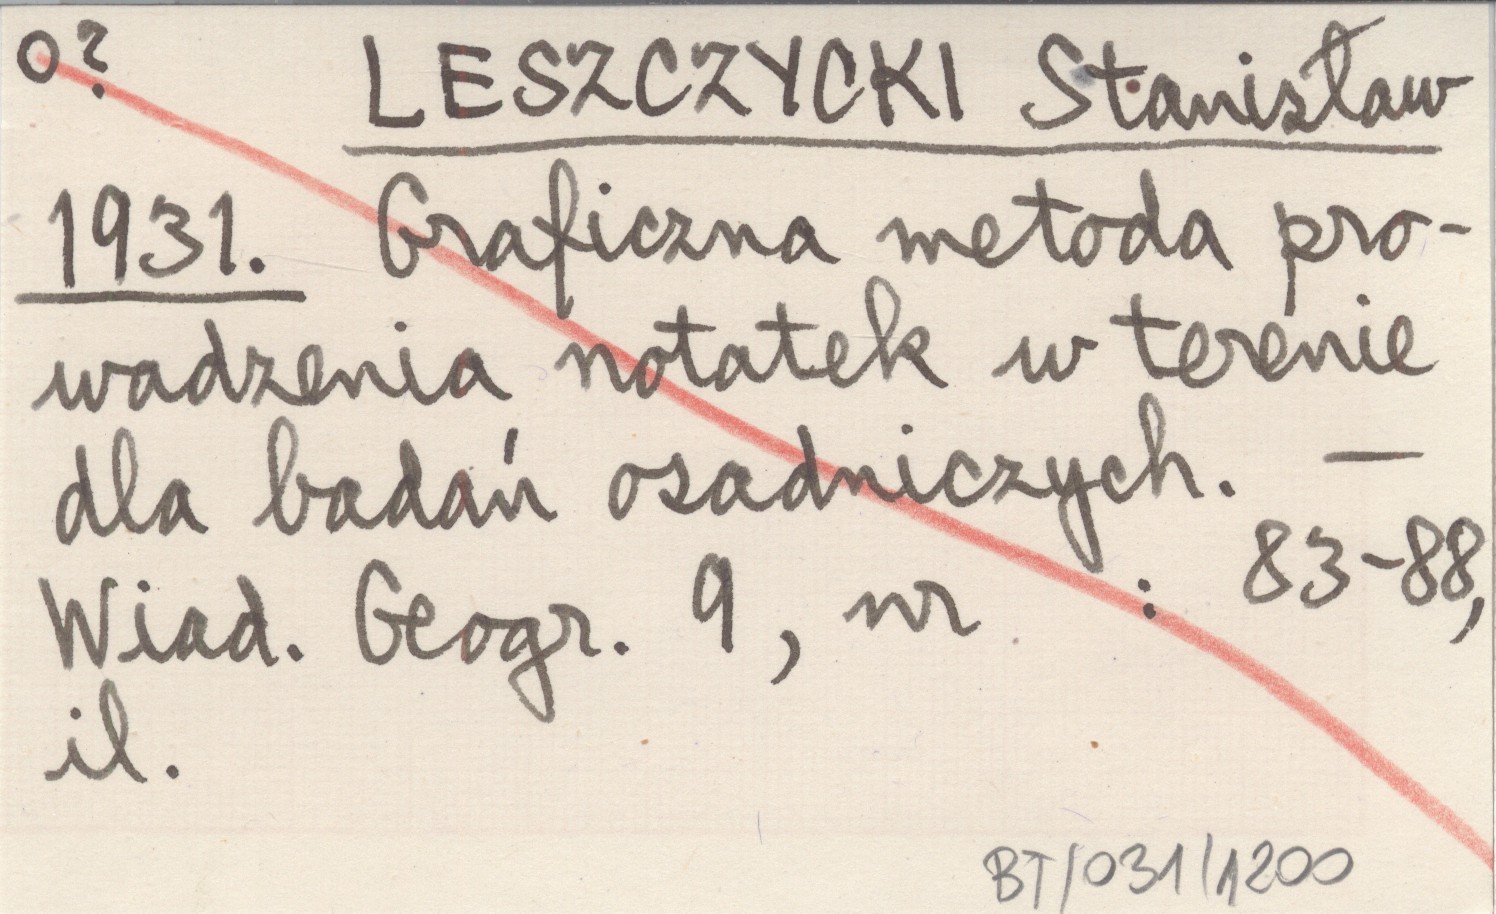 o? LESZCZYCKI Stanisław
1931. Graficzna metoda pro-
wadzenia notatek w terenie
dla badań osadniczych. —
Wiad. Geogr. 9, nr : 83-88,
il.
BT/031/1200